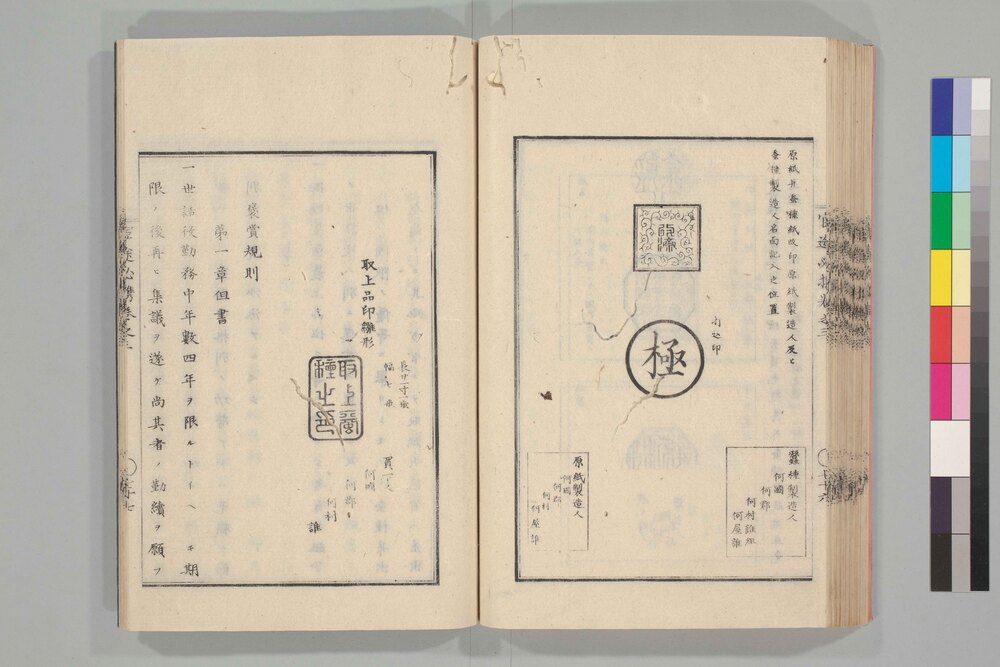 原紙并蚕種紙改印原紙製造人及ヒ
蚕種製造人名面記入之位置
極
蠶種製造人
何國
何郡
何村誰組
何屋誰
原紙製造人
何國
何郡
何村
何屋誰
取上品印雛形
取上蚕
種之印
買人
何國
何郡
何村
誰
別褒賞規則
第一章但書
一世話役勤務中年數四年ヲ限ルトイヘ𪜈期
限ノ後再ヒ集議ヲ遂ケ尚其者ノ勤續ヲ願フ